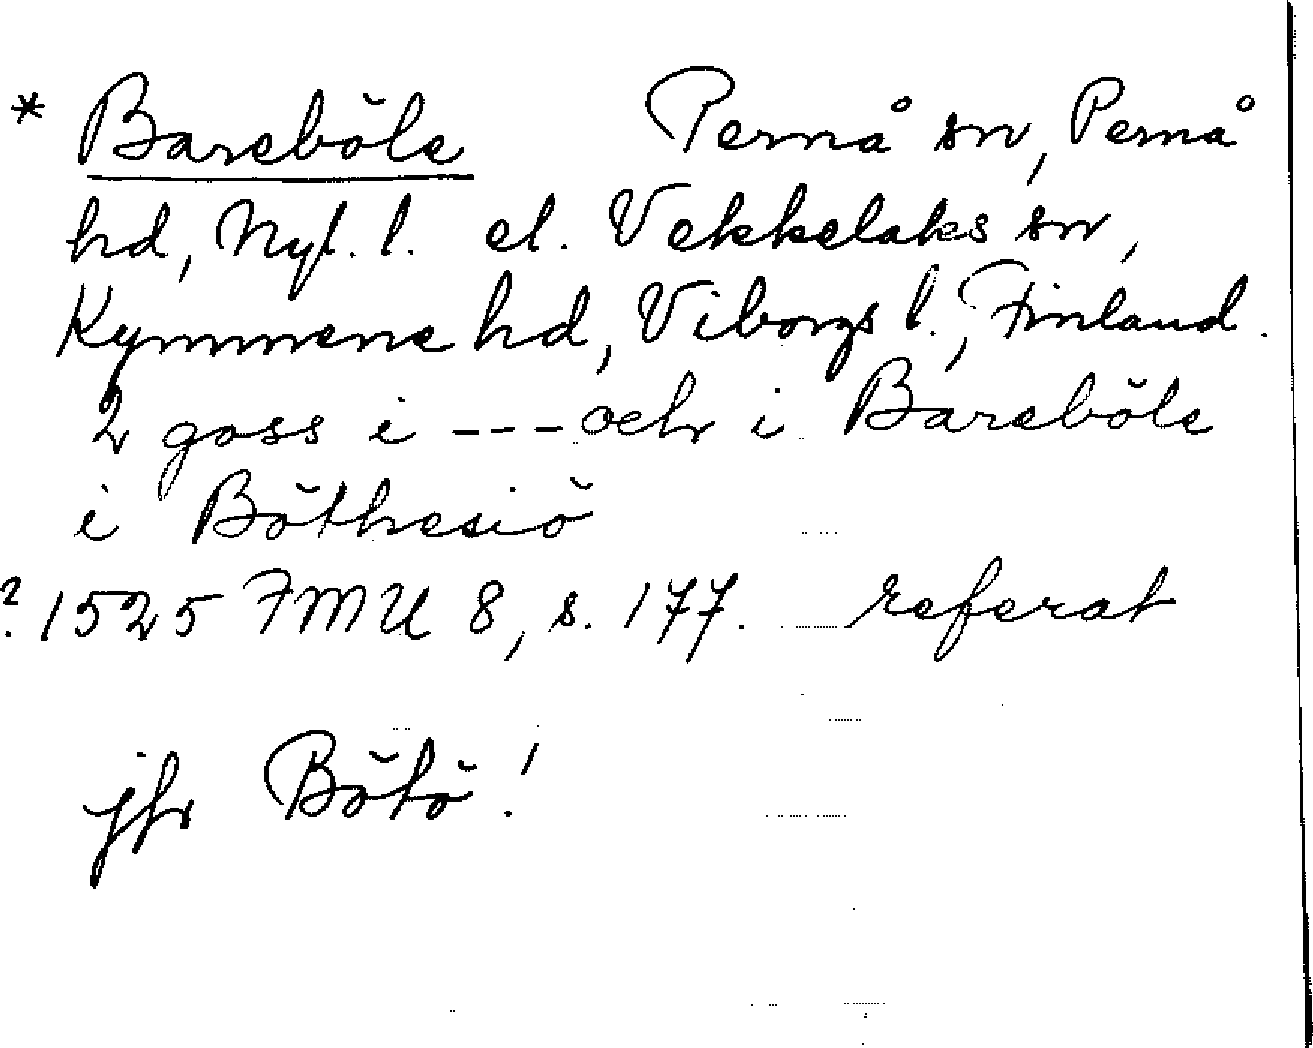 * Bareböle Pernå sn, Pernå
hd, Nyl. l. el. Vekkelaks sn,
Kymmene hd, Viborgs l., Finland.
2 goss i --- och i Bareböle
i Böthesiö
? 1525 FMU 8, s. 177. referat
jfr Bötö!